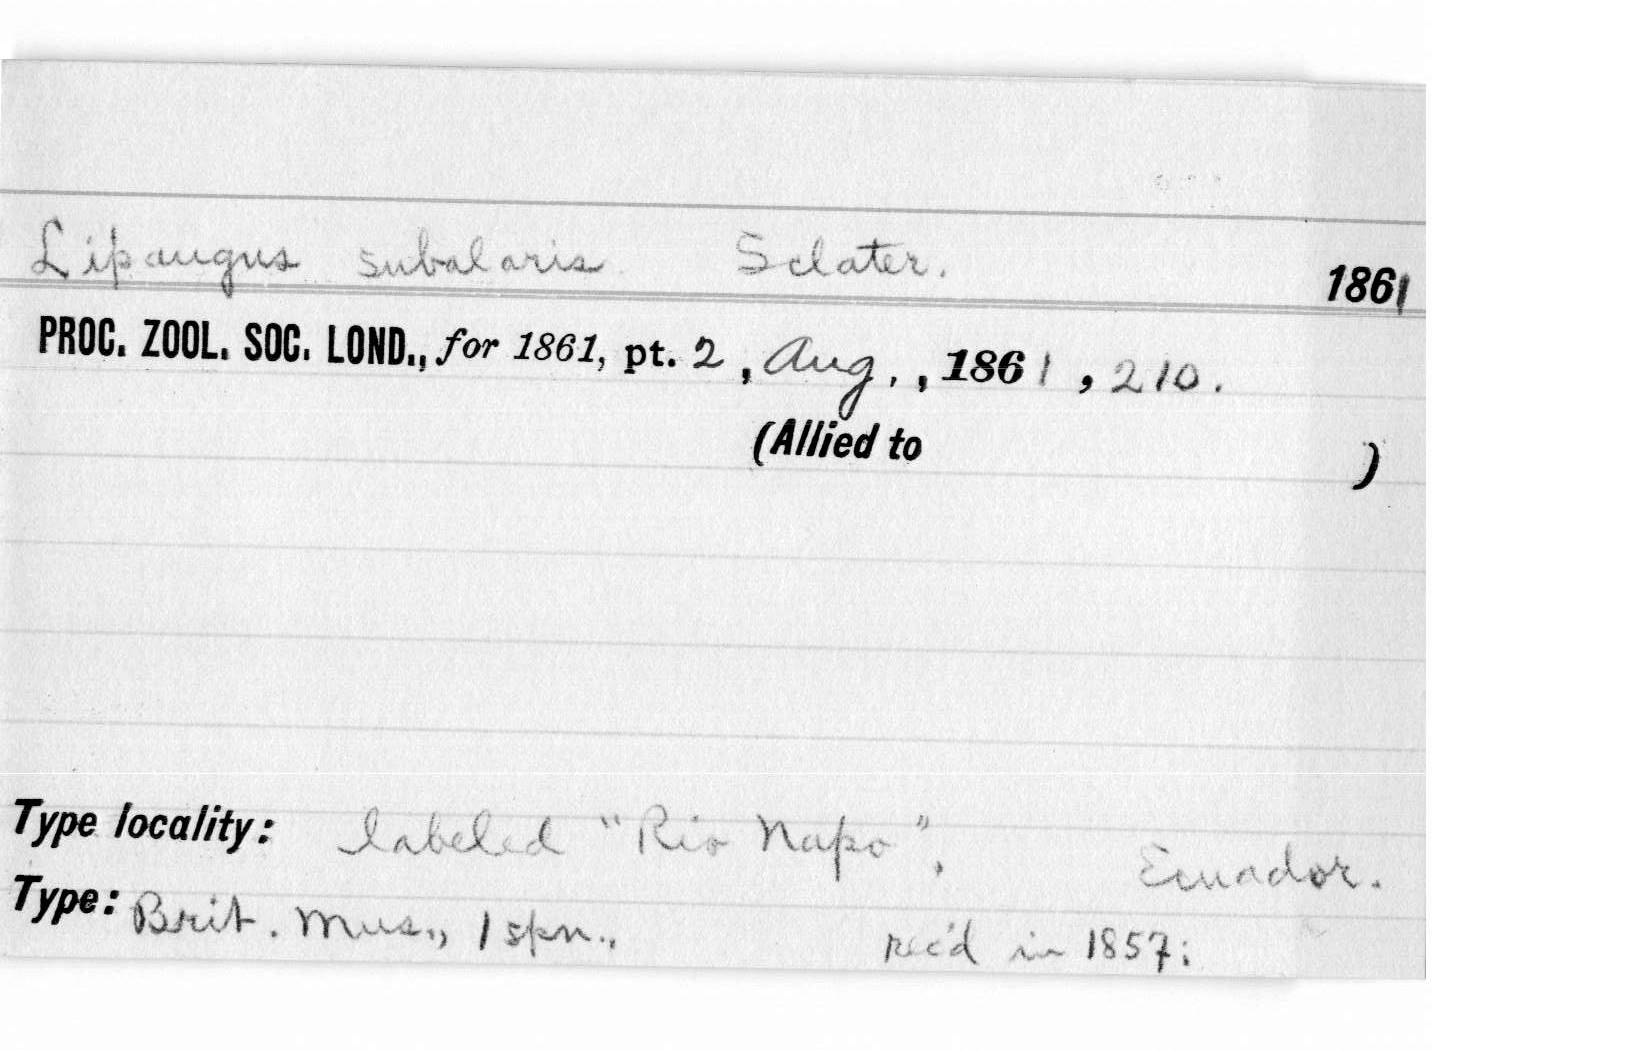 Lipaugus subalaris Sclater. 1861
PROC. ZOOL. SOC. LOND., for 1861, pt. 2, Aug., 1861, 210.
(Allied to )
Type locality: labeled "Rio Napo", Ecuador.
Type: Brit. Mus., 1 spn., rec'd in 1857;